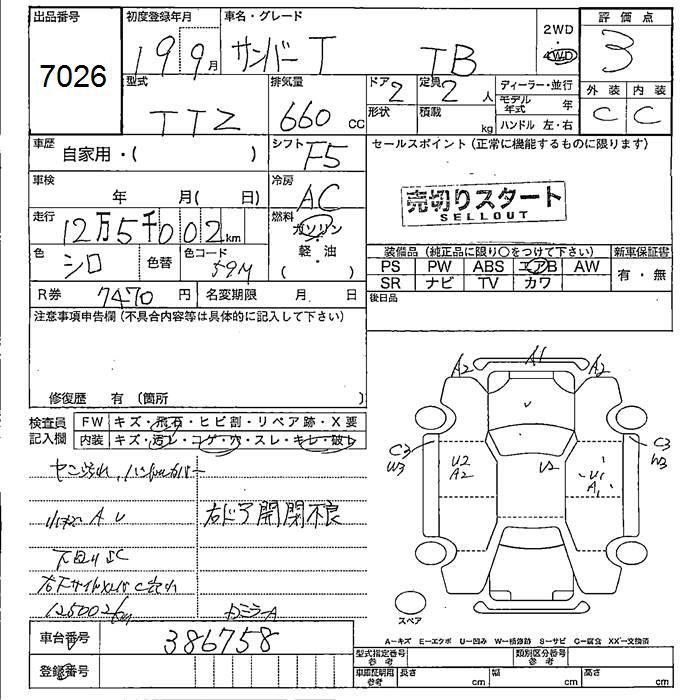 出品番号
7026
初度登録年月
19 9月
車名・グレード
サンバー T TB
2WD
・
4WD
評価点
3
外装 内装
C C
型式
TTZ
排気量
660 cc
ドア
2
形状
定員
2 人
積載
kg
ディーラー・並行
モデル年式 年
ハンドル 左・右
車歴
自家用・( )
シフト
F5
車検
年 月( 日)
冷房
AC
走行
12万5千002km
燃料
ガソリン
・
軽・油
( )
色
シロ
色替
色コード
59M
R券 7470 円
名変期限 月 日
セールスポイント(正常に機能するものに限ります)
売切りスタート
SELLOUT
装備品(純正品に限り○をつけて下さい)
PS PW ABS エアB AW
SR ナビ TV カワ
新車保証書
有・無
後日品
注意事項申告欄(不具合内容等は具体的に記入して下さい)
修復歴 有(箇所 )
検査員
記入欄
FW キズ・飛石・ヒビ割・リペア跡・X要
内装 キズ・汚レ・コゲ・穴・スレ・キレ・破レ
A U
右ドア開閉不良
下回りSC
125002km
A
A2 A1 A2
C3
W3
U2
A2
U2
U1
A1
C3
W3
スペア
A-キズ E-エクボ U-凹み W-補修跡 S-サビ C-腐食 XX-交換済
車台番号 386758
登録番号
型式指定番号
参考
類別区分番号
参考
車庫証明用
参考
長さ cm
幅 cm
高さ cm